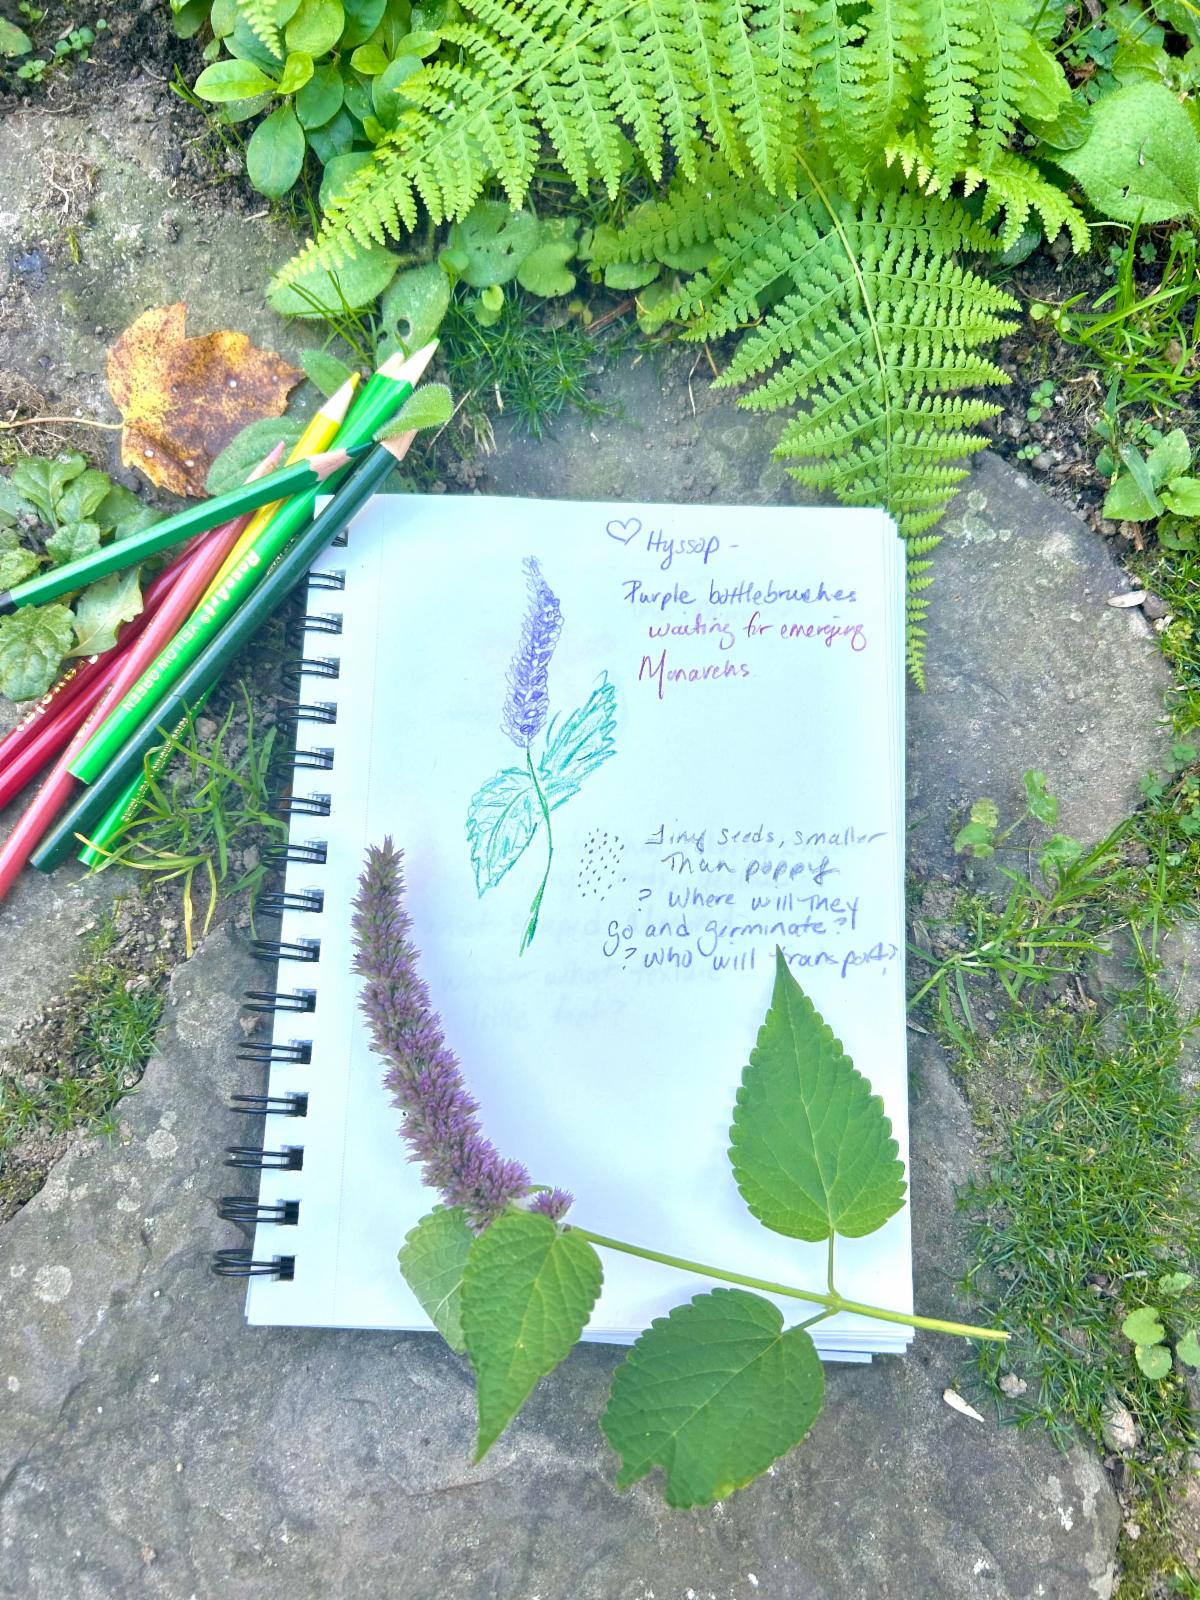 ♡ Hyssop -
Purple bottlebrushes
waiting for emerging
Monarchs.
Tiny seeds, smaller
Than poppy
? Where will They
go and germinate?
? Who will transport?
RoseArt YELLOW GREEN